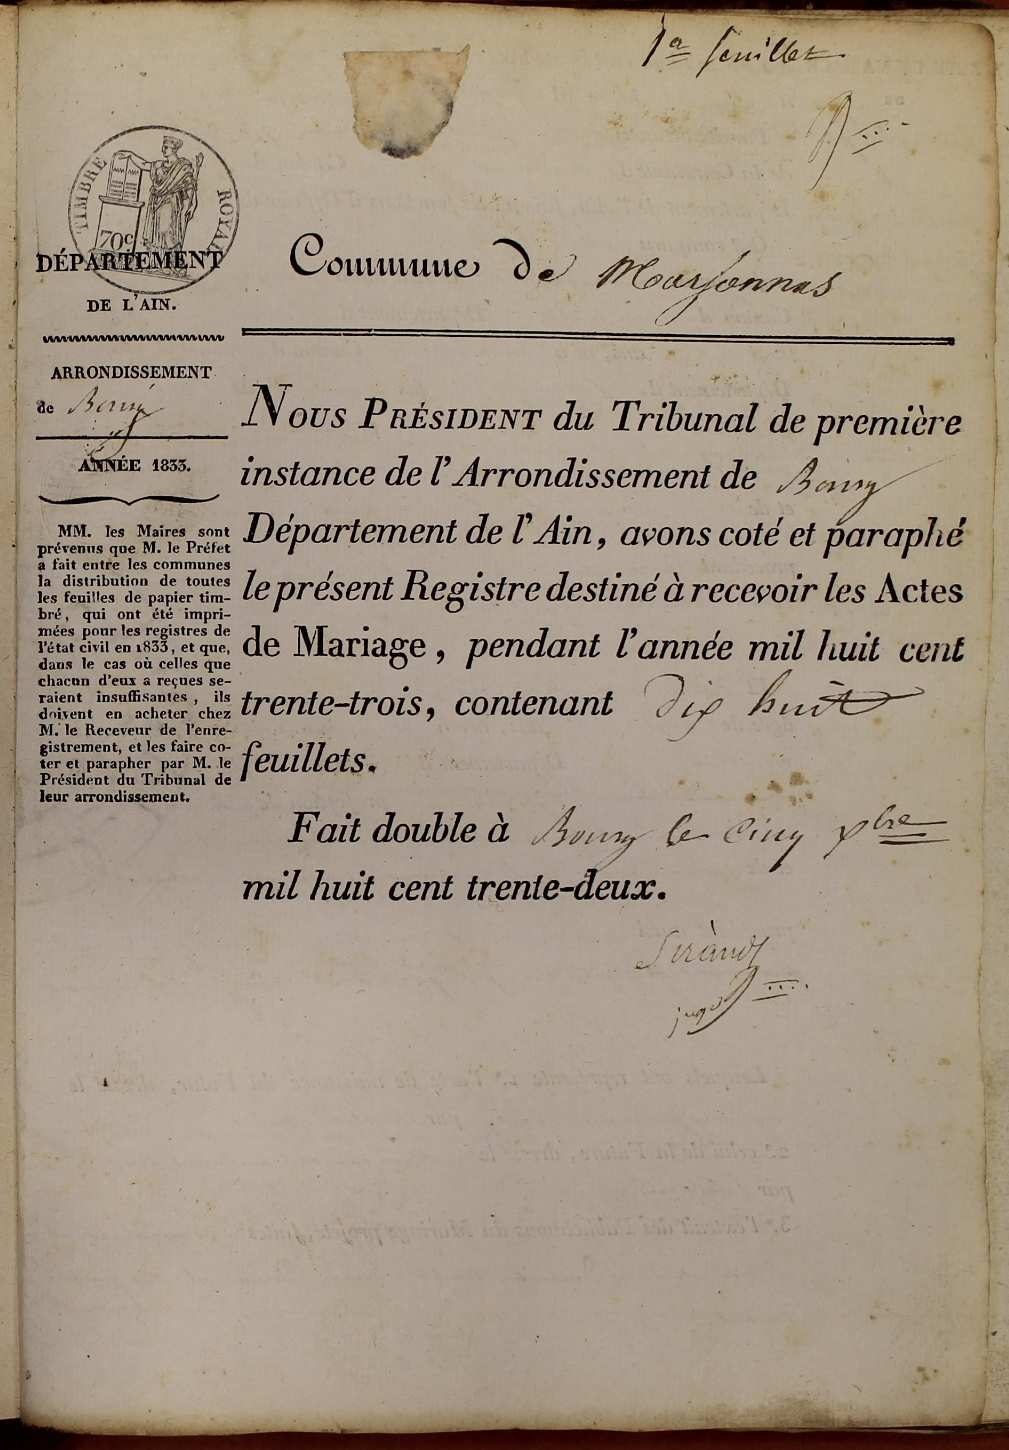 1er feuillet
TIMBRE ROYAL
70c
DÉPARTEMENT
DE L'AIN.
ARRONDISSEMENT
de Bourg
ANNÉE 1833.
MM. les Maires sont
prévenus que M. le Préfet
a fait entre les communes
la distribution de toutes
les feuilles de papier tim-
bré, qui ont été impri-
mées pour les registres de
l'état civil en 1833, et que,
dans le cas où celles que
chacun d'eux a reçues se-
raient insuffisantes, ils
doivent en acheter chez
M. le Receveur de l'enre-
gistrement, et les faire co-
ter et parapher par M. le
Président du Tribunal de
leur arrondissement.
Commune de Marsonnas
NOUS PRÉSIDENT du Tribunal de première
instance de l'Arrondissement de Bourg
Département de l'Ain, avons coté et paraphé
le présent Registre destiné à recevoir les Actes
de Mariage, pendant l'année mil huit cent
trente-trois, contenant dix huit
feuillets.
Fait double à Bourg le cinq xbre
mil huit cent trente-deux.
juge